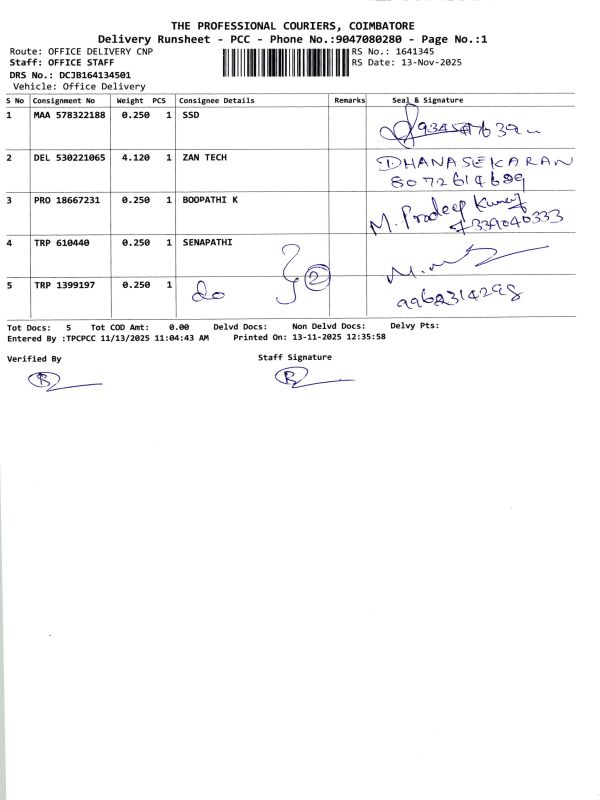 THE PROFESSIONAL COURIERS, COIMBATORE
Delivery Runsheet - PCC - Phone No.:9047080280 - Page No.:1
Route: OFFICE DELIVERY CNP RS No.: 1641345
Staff: OFFICE STAFF RS Date: 13-Nov-2025
DRS No.: DCJB164134501
Vehicle: Office Delivery
S No Consignment No Weight PCS Consignee Details Remarks Seal & Signature
1 MAA 578322188 0.250 1 SSD
2 DEL 530221065 4.120 1 ZAN TECH DHANASEKARAN
8072614689
3 PRO 18667231 0.250 1 BOOPATHI K M. Pradeep Kumar
7339040333
4 TRP 610440 0.250 1 SENAPATHI
5 TRP 1399197 0.250 1 do 2 9962314298
Tot Docs: 5 Tot COD Amt: 0.00 Delvd Docs: Non Delvd Docs: Delvy Pts:
Entered By :TPCPCC 11/13/2025 11:04:43 AM Printed On: 13-11-2025 12:35:58
Verified By Staff Signature